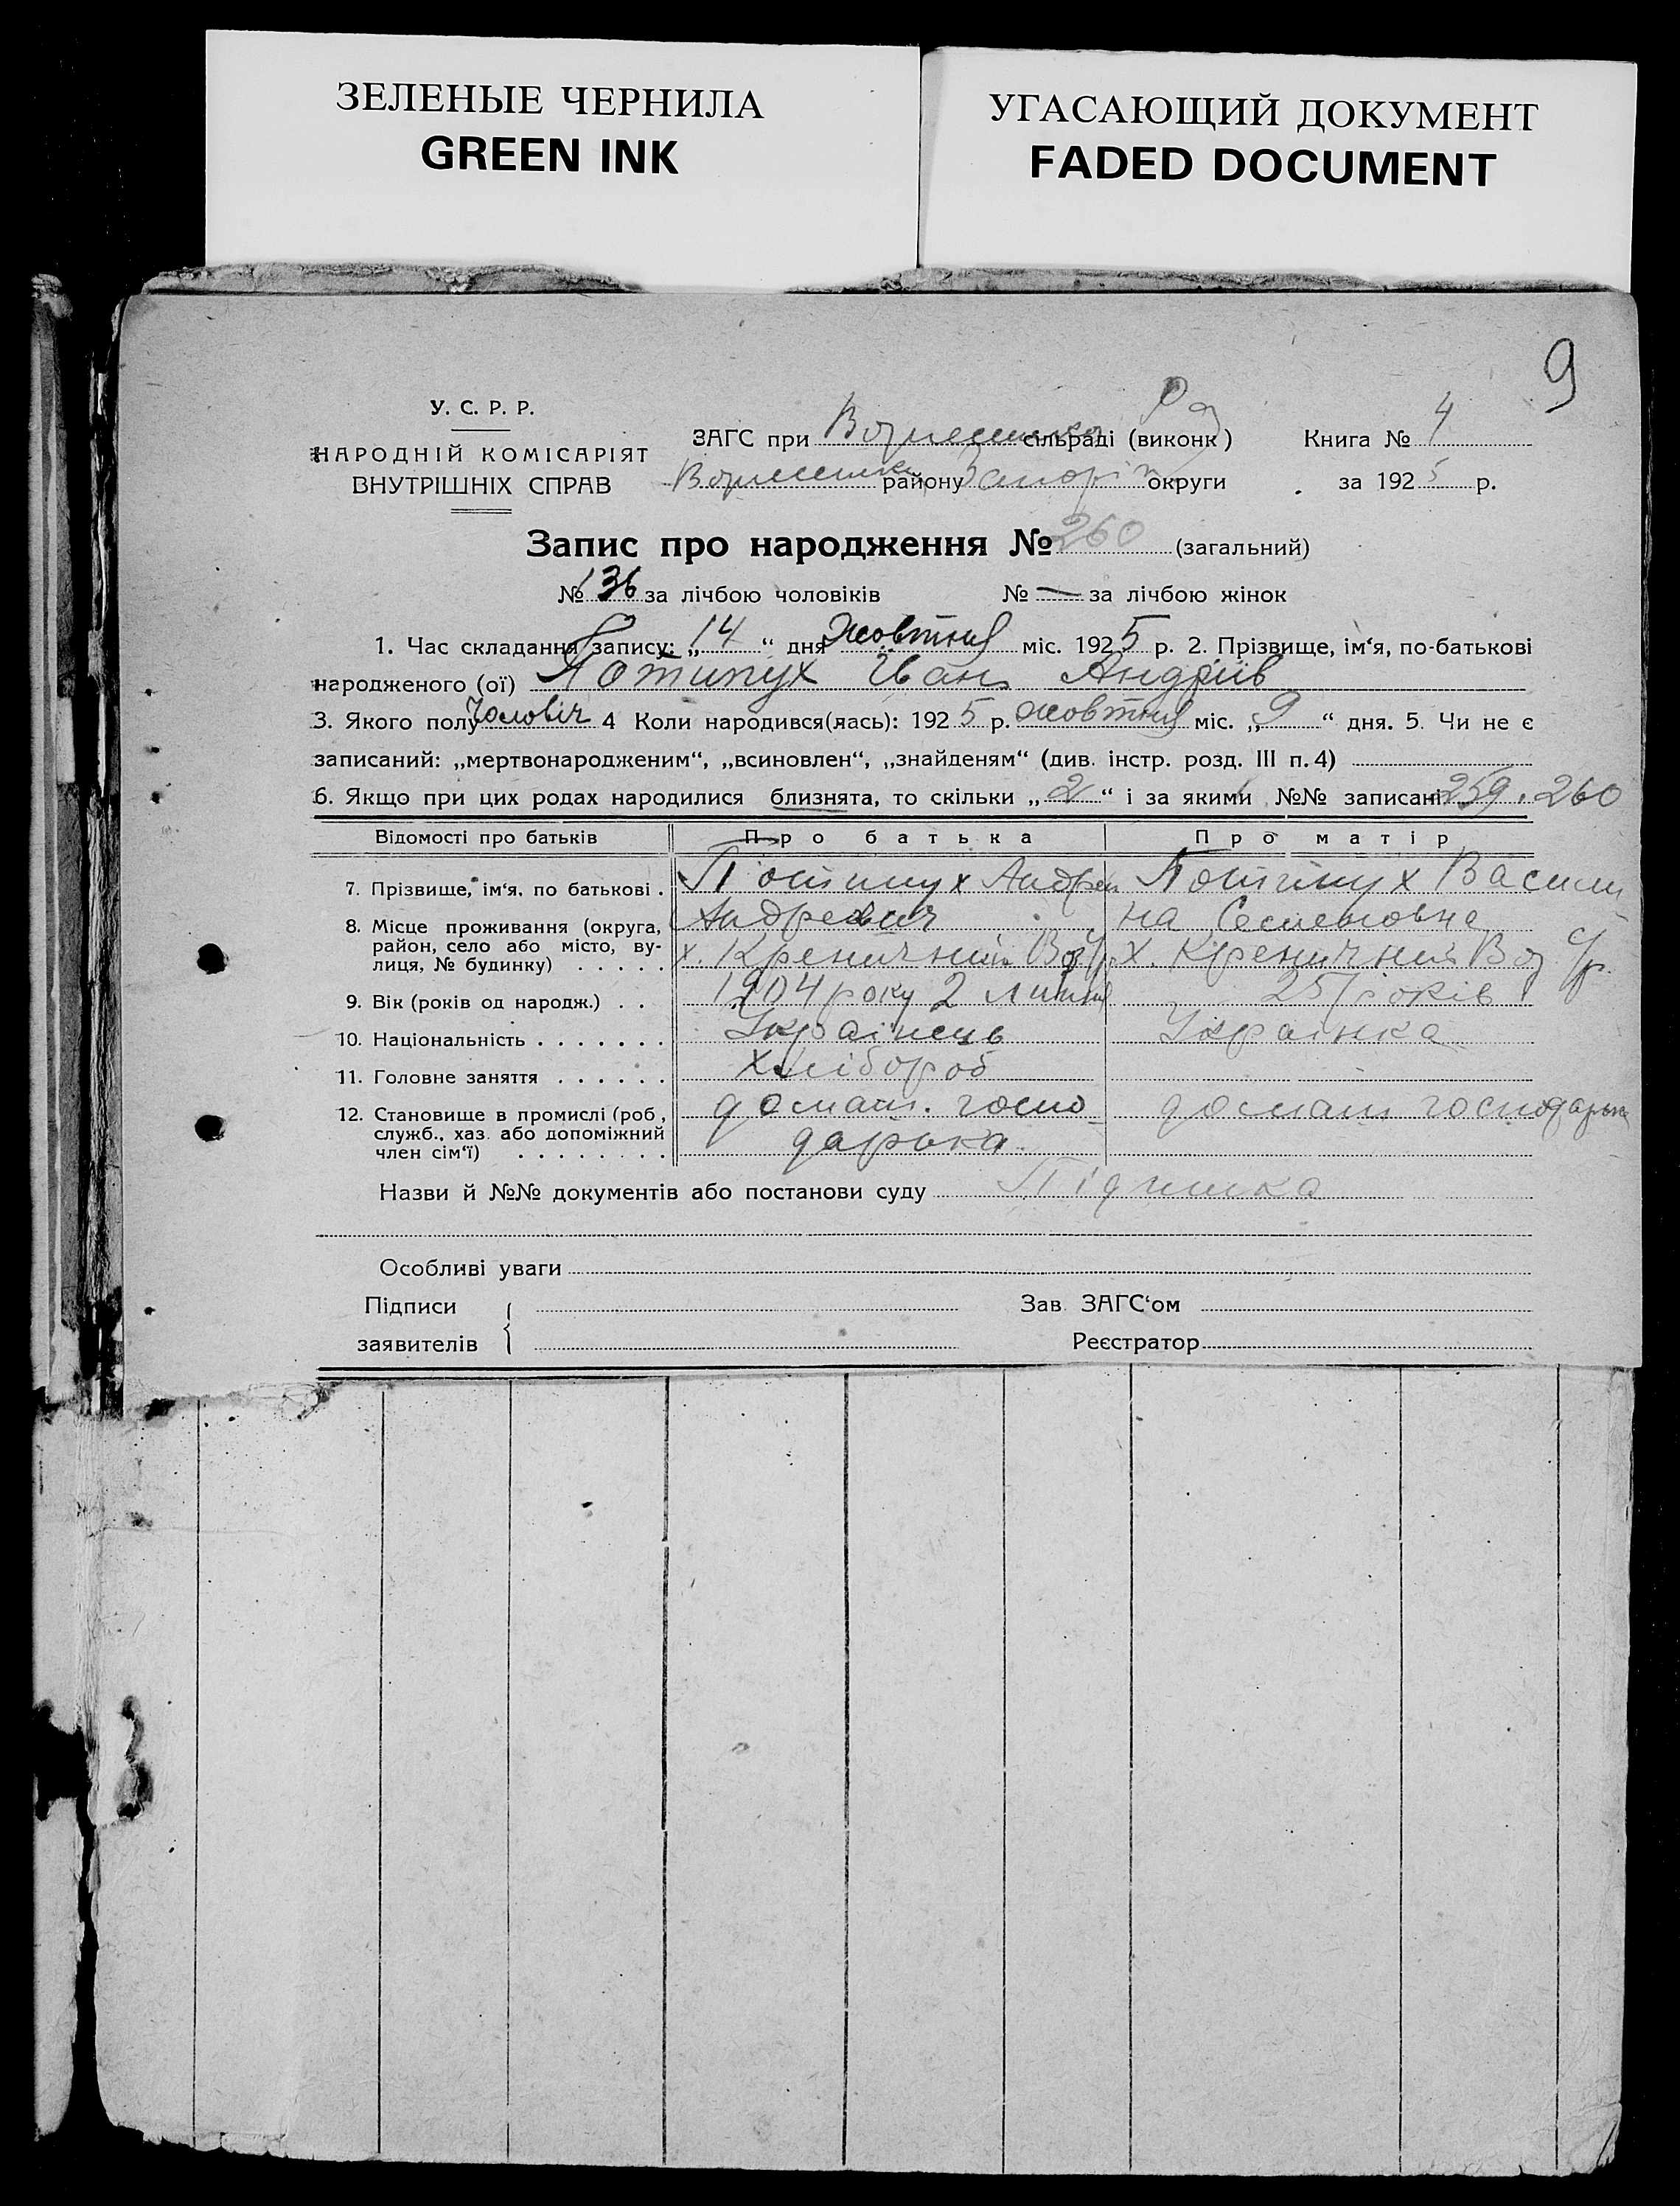 ЗЕЛЕНЫЕ ЧЕРНИЛА
GREEN INK
УГАСАЮЩИЙ ДОКУМЕНТ
FADED DOCUMENT
9
У. С. Р. Р.
НАРОДНІЙ КОМІСАРІЯТ
ВНУТРІШНІХ СПРАВ
ЗАГС при сільраді (виконк) Книга № 4
району Запоріз округи за 1925 р.
Запис про народження № 260 (загальний)
№ 136 за лічбою чоловіків № — за лічбою жінок
1. Час складання запису: „14“ дня жовтня міс. 1925 р. 2. Прізвище, ім‘я, по-батькові
народженого (ої) Потипух Іван Андріїв
3. Якого полу чоловіч 4 Коли народився(лась): 1925 р. жовтня міс. „9“ дня. 5. Чи не є
записаний: „мертвонародженим“, „всиновлен“, „знайденям“ (див. інстр. розд. III п. 4)
6. Якщо при цих родах народилися близнята, то скільки „2“ і за якими №№ записані 259. 260
Відомості про батьків Про батька Про матір
7. Прізвище, ім‘я, по батькові . Потипух Андрей Потипух Васили
Андреевич на Семеновна
8. Місце проживання (округа, район, село або місто, вулиця, № будинку) . . . . . х. Креничний Воз х. Креничний Воз с/р.
9. Вік (років од народж.) . . 1904 року 2 липня 25 років
10. Національність . . . . . . . Українець Українка
11. Головне заняття . . . . . . Хлібороб
12. Становище в промислі (роб, служб., хаз. або допоміжний член сім‘ї) . . . . . . . . домаш. госпо домаш господарка
дарька
Назви й №№ документів або постанови суду Підписка
Особливі уваги
Підписи Зав. ЗАГС‘ом
заявителів Реєстратор